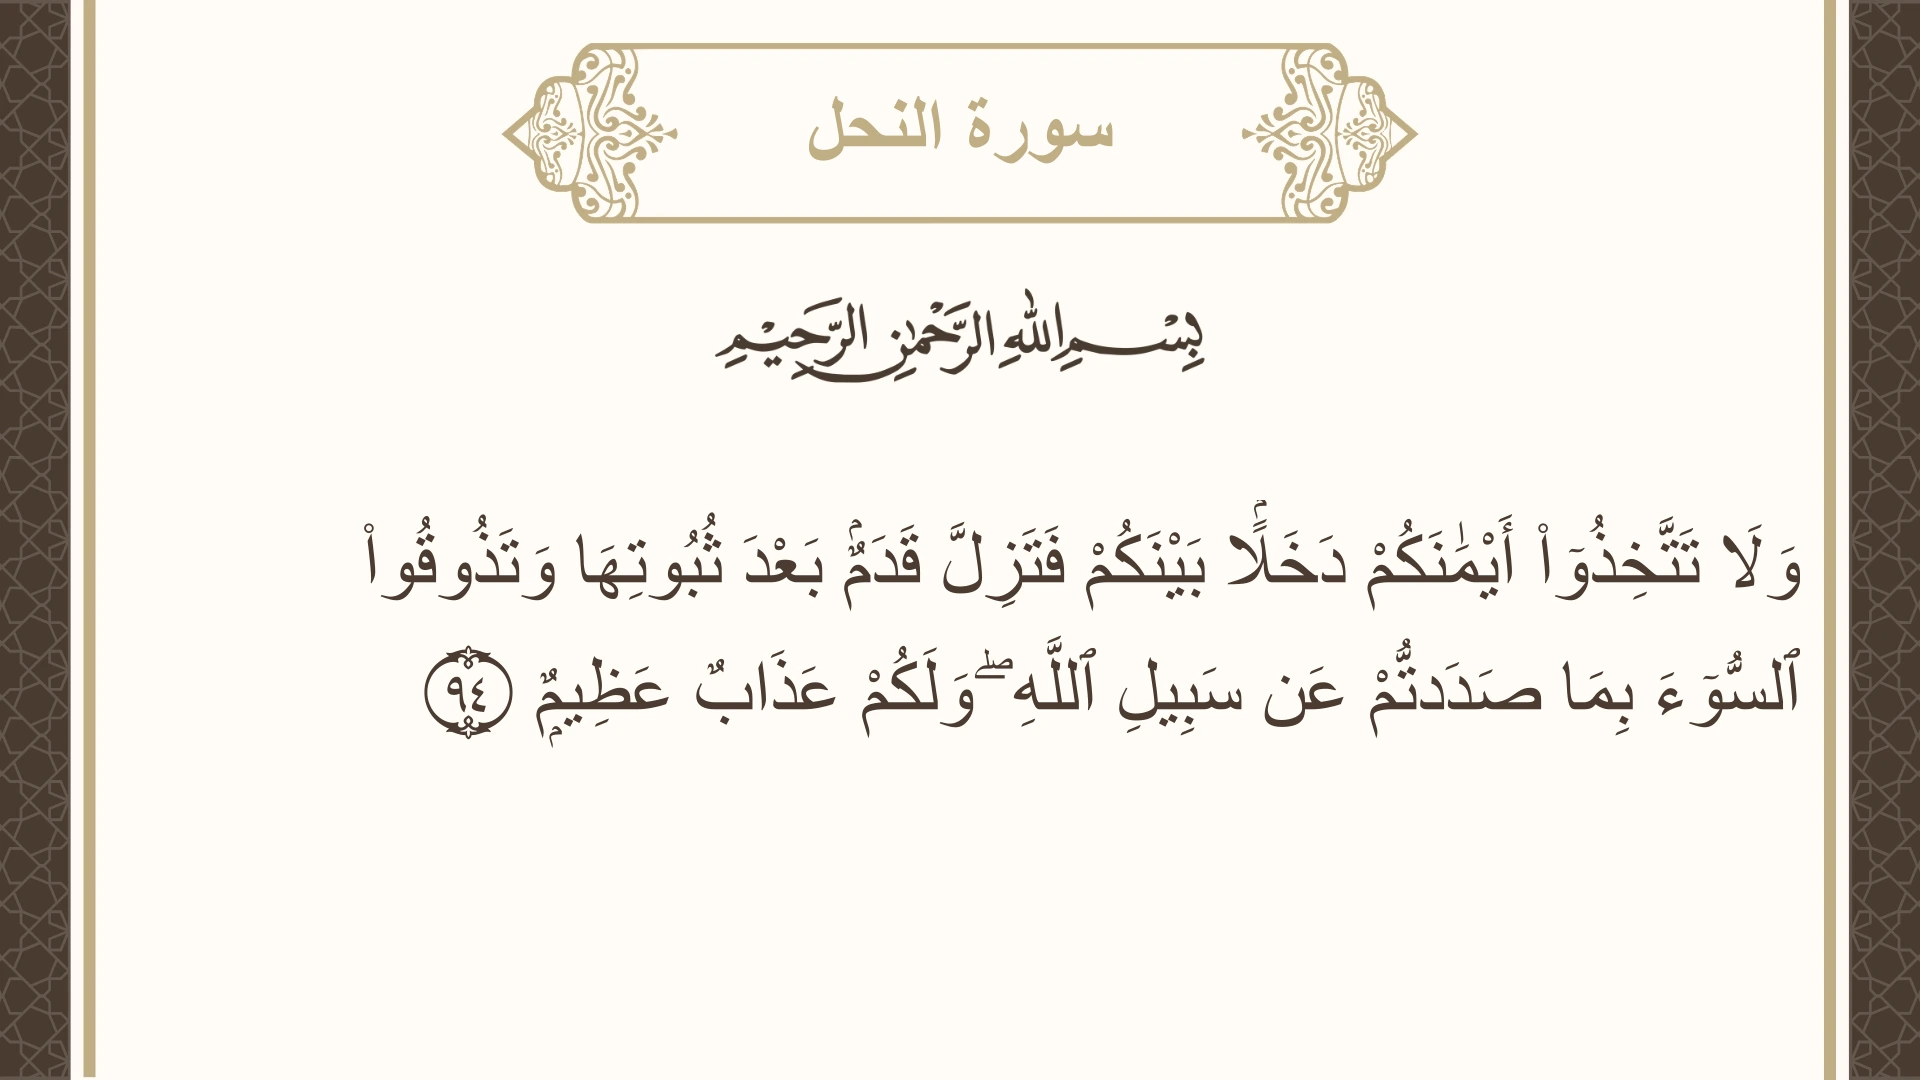 سورة النحل
بِسْمِ اللهِ الرَّحْمٰنِ الرَّحِيْمِ
وَلَا تَتَّخِذُوٓا۟ أَيْمَـٰنَكُمْ دَخَلًۢا بَيْنَكُمْ فَتَزِلَّ قَدَمٌۢ بَعْدَ ثُبُوتِهَا وَتَذُوقُوا۟
ٱلسُّوٓءَ بِمَا صَدَدتُّمْ عَن سَبِيلِ ٱللَّهِ ۖ وَلَكُمْ عَذَابٌ عَظِيمٌۭ ٩٤